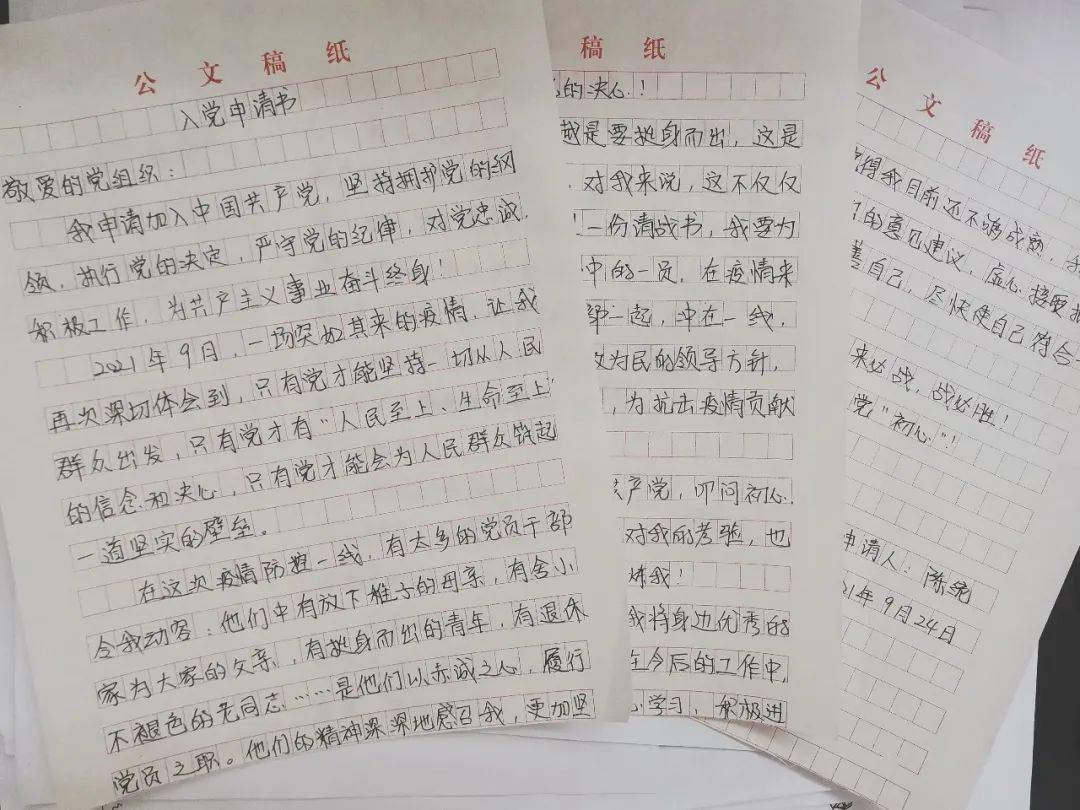 公文稿纸
入党申请书
敬爱的党组织：
我申请加入中国共产党，坚持拥护党的纲
领，执行党的决定，严守党的纪律，对党忠诚，
积极工作，为共产主义事业奋斗终身！
2021年9月，一场突如其来的疫情，让我
再次深切体会到，只有党才能坚持一切从人民
群众出发，只有党才有“人民至上、生命至上”
的信念和决心，只有党才能会为人民群众筑起
一道坚实的壁垒。
在这次疫情防控一线，有太多的党员干部
令我动容：他们中有放下稚子的母亲，有舍小
家为大家的父亲，有挺身而出的青年，有退休
不褪色的老同志……是他们以赤诚之心，履行
党员之职。他们的精神深深地感召我，更加坚
稿纸
的决心！
越是要挺身而出，这是
对我来说，这不仅仅
一份请战书，我要为
中的一员，在疫情来
一起，冲在一线，
为民的领导方针，
，为抗击疫情贡献
产党，叩问初心
对我的考验，也
炼我！
我将身边优秀的
在今后的工作中，
学习，积极进
公文稿纸
得我目前还不够成熟，
的意见建议，虚心接受
善自己，尽快使自己符合
来必战，战必胜！
党“初心”！
申请人：陈
21年9月24日